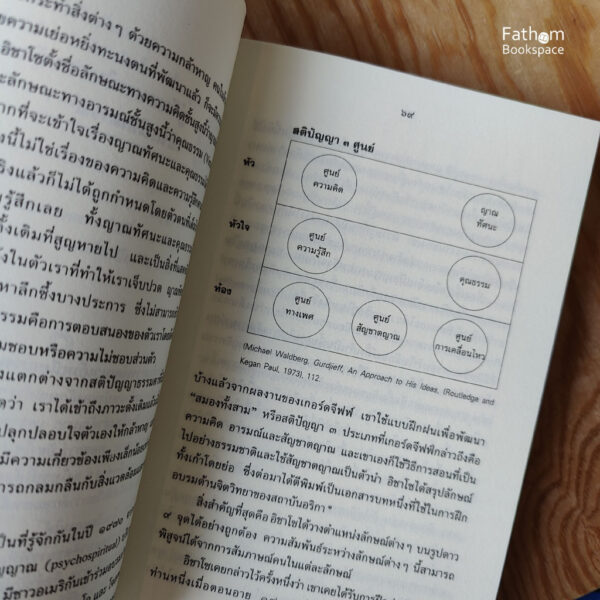 Fathom
Bookspace
ระทำสิ่งต่างๆ ด้วยความกล้าหาญ
ความเย่อหยิ่งทะนงตนที่พัฒนาแล้ว
อิชาโซตั้งชื่อลักษณะทางความคิดชั้นสูงนี้
ลักษณะทางอารมณ์ชั้นสูงนี้ว่าคุณธรรม
ากที่จะเข้าใจเรื่องญาณทัศนะและคุณธรรม
งนี้ไม่ใช่เรื่องของความคิดและความรู้สึก
ริงแล้วก็ไม่ได้ถูกกำหนดโดยตัวตนที่
รู้สึกเลย ทั้งญาณทัศนะและคุณธรรม
ั้งเดิมที่สูญหายไป และเป็นสิ่งที่
ังในตัวเราที่ทำให้เราเจ็บปวด
หาลึกซึ้งบางประการ ซึ่งไม่สามารถ
รรมคือการตอบสนองของตัวเราโดย
มชอบหรือความไม่ชอบส่วนตัว
งแตกต่างจากสติปัญญาธรรมดา
ดว่า เราได้เข้าถึงภาวะดั้งเดิม
ปลุกปลอบใจตัวเองให้กล้าหาญ
มีความเกี่ยวข้องเพียงเล็กน้อย
ารถกลมกลืนกับสิ่งแวดล้อม
ป็นที่รู้จักกันในปี ๑๙๗๐
ญาณ (psychospiritual)
มีชาวอเมริกันเข้าร่วม
๖๙
สติปัญญา ๓ ศูนย์
หัว
ศูนย์
ความคิด
ญาณ
ทัศนะ
หัวใจ
ศูนย์
ความรู้สึก
คุณธรรม
ท้อง
ศูนย์
ทางเพศ
ศูนย์
สัญชาตญาณ
ศูนย์
การเคลื่อนไหว
(Michael Waldberg, Gurdjieff, An Approach to His Ideas, (Routledge and
Kegan Paul, 1973), 112.
บ้างแล้วจากผลงานของเกอร์ดจีฟฟ์ เขาใช้แบบฝึกฝนเพื่อพัฒนา
“สมองทั้งสาม” หรือสติปัญญา ๓ ประเภทที่เกอร์ดจีฟฟ์กล่าวถึงคือ
ความคิด อารมณ์และสัญชาตญาณ และเขาเองก็ใช้วิธีการสอนที่เป็น
ไปอย่างธรรมชาติและใช้สัญชาตญาณเป็นตัวนำ อิชาโซได้สรุปลักษณ์
ทั้งเก้าโดยย่อ ซึ่งต่อมาได้ตีพิมพ์เป็นเอกสารบทหนึ่งที่ใช้ในการฝึก
อบรมด้านจิตวิทยาของสถาบันอริกา
สิ่งสำคัญที่สุดคือ อิชาโซได้วางตำแหน่งลักษณ์ต่างๆ บนรูปดาว
๙ จุดได้อย่างถูกต้อง ความสัมพันธ์ระหว่างลักษณ์ต่างๆ นี้สามารถ
พิสูจน์ได้จากการสัมภาษณ์คนในแต่ละลักษณ์
อิชาโซเคยกล่าวไว้ครั้งหนึ่งว่า เขาเคยได้รับการ
ท่านหนึ่งเมื่อตอนอายุ